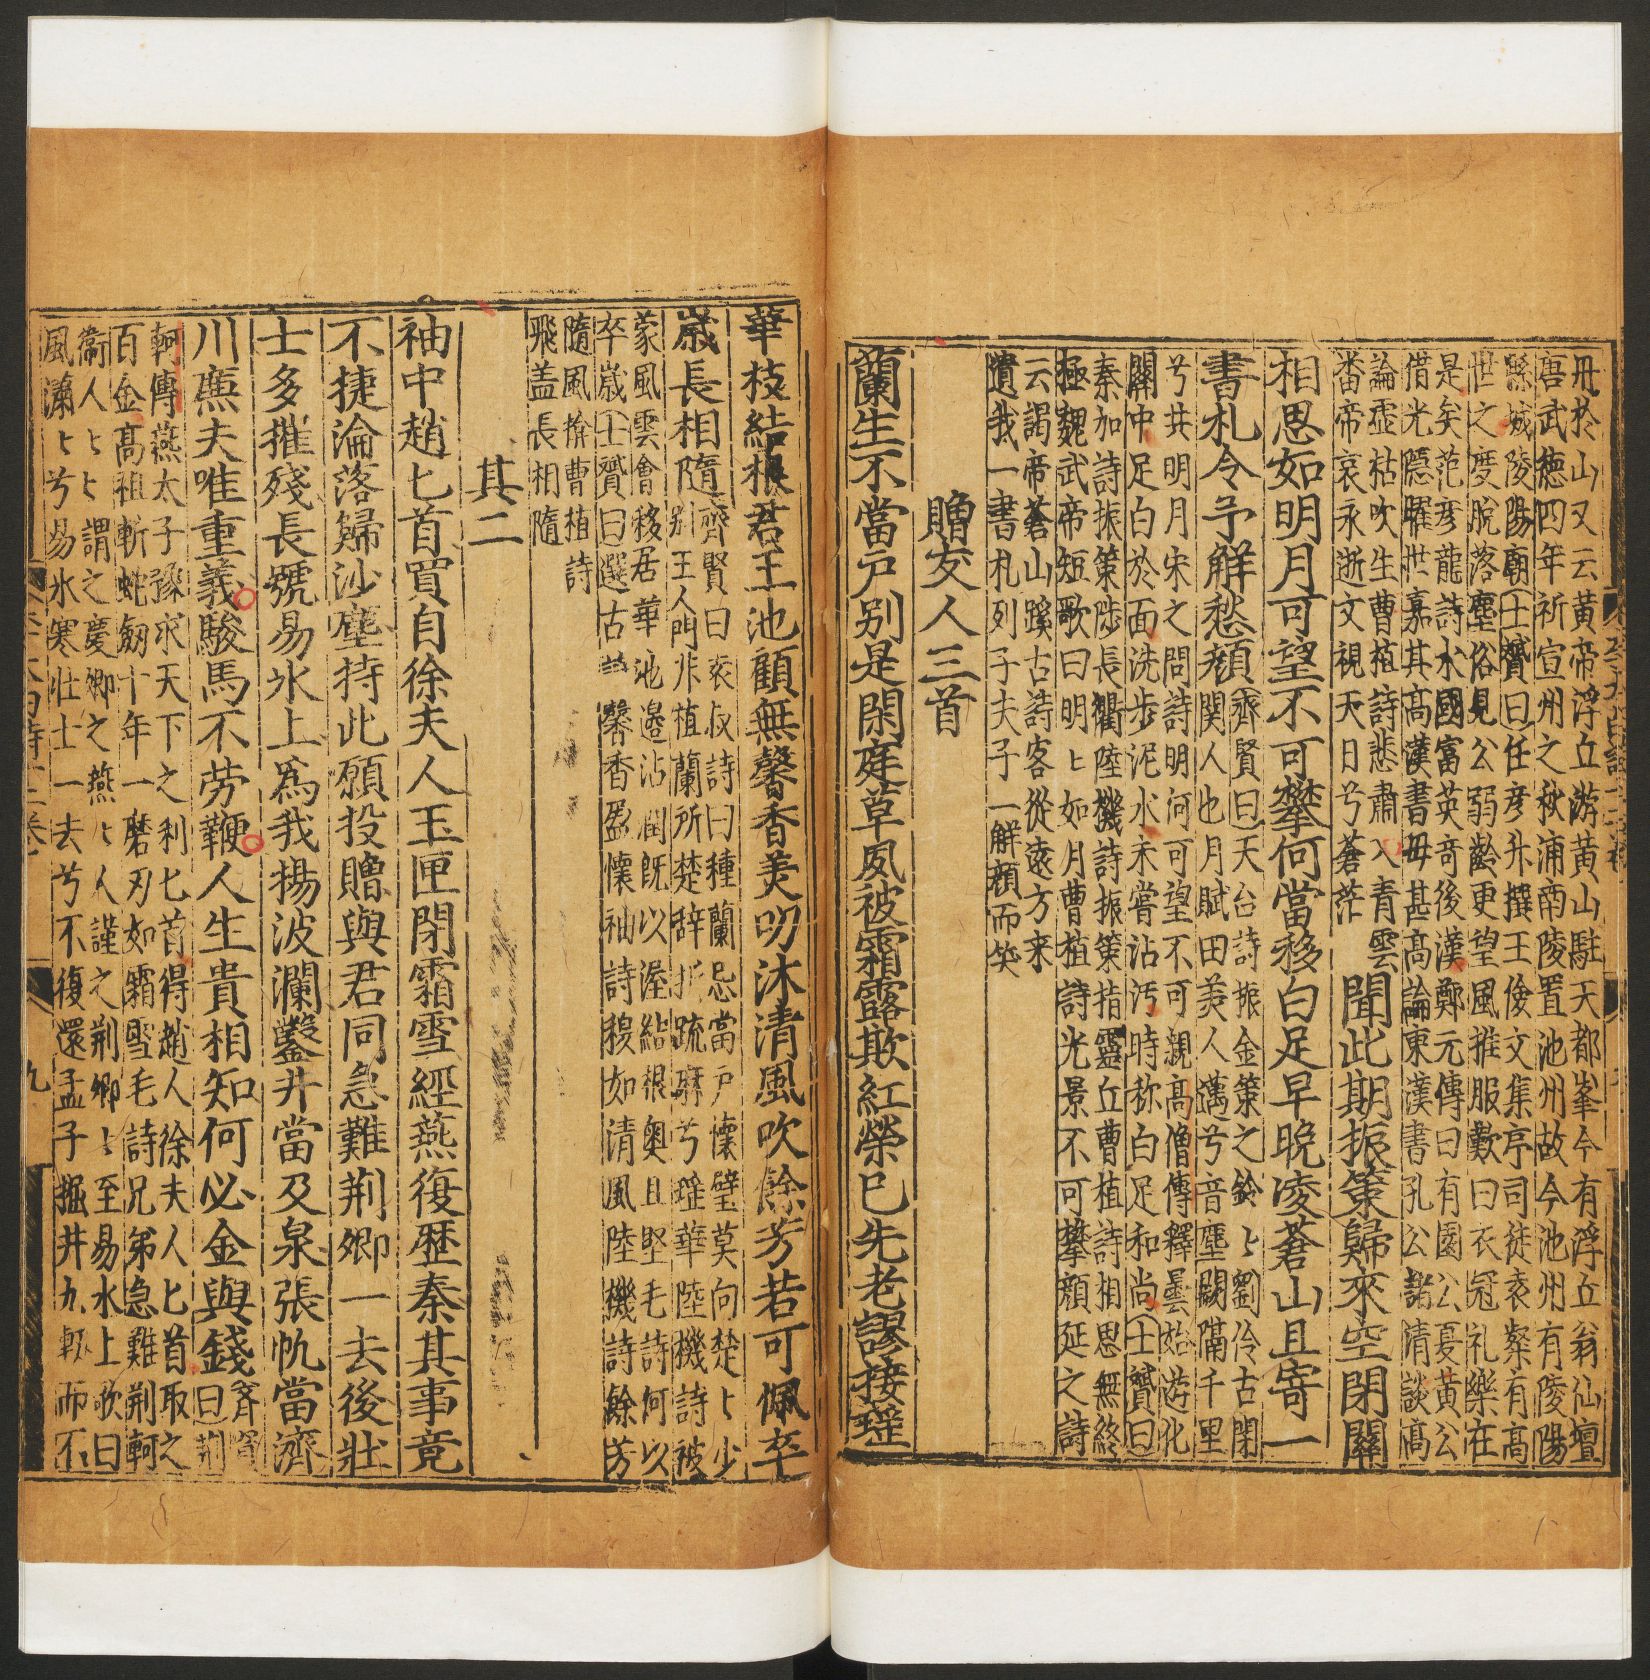 丹於山又云黃帝浮丘游黃山駐天都峯今有浮丘翁仙壇
唐武徳四年祈宣州之秋浦南陵置池州故今池州有陵陽
縣城陵陽廟士贇曰任彦升撰王儉文集亭司徒袁粲有髙
世之度脫落塵俗見公弱齡更望風推服歎曰衣冠礼樂在
是矣范彦龍詩水國富英竒後漢鄭元傳曰有園公夏黃公
借光隠耀世嘉其髙漢書毋甚髙論東漢書孔公緒清談髙
論虚枯吹生曹植詩悲肅入青雲
番帝哀永逝文視天日兮蒼茫
聞此期振策歸來空閉關
相思如明月可望不可攀何當移白足早晩凌蒼山且寄一
書札令予解愁顔
齊賢曰天台詩振金策之鈴ヒ劉伶古閉
関人也月賦田美人邁兮音塵闕隔千里
兮共明月宋之問詩明何可望不可親髙僧傳釋曇始遊化
關中足白於面洗步泥水未嘗沾汚時称白足和尚士贇曰
秦加詩振策陟長衢陸機詩振策指靈丘曹植詩相思無終
極魏武帝短歌曰明ヒ如月曹植詩光景不可攀顔延之詩
云謁帝蒼山蹊古詩客從遠方来
遺我一書札列子夫子一解顔而笑
贈友人三首
蘭生不當戸别是閑庭草夙被霜露欺紅榮已先老謬接瑤
華枝結根君王池顧無馨香美叨沐清風吹餘芳若可佩卒
歲長相隨
齊賢曰袁叔詩曰種蘭忌當戸懷璧莫向楚ヒ少
别王人門非植蘭所楚辞折疏麻兮瑶華陸機詩被
蒙風雲會移居華池邊沾潤既以渥結根奥且堅毛詩何以
卒歲士贇曰選古 馨香盈懷袖詩穆如清風陸機詩餘芳
隨風捨曹植詩
飛盖長相隨
其二
袖中趙匕首買自徐夫人玉匣閉霜雪經燕復歴秦其事竟
不捷淪落歸沙塵持此願投贈與君同急難荆卿一去後壯
士多摧殘長號易水上爲我揚波瀾鑿井當及泉張帆當濟
川㢘夫唯重義駿馬不劳鞭人生貴相知何必金與錢
齊賢
曰荆
軻傳燕太子豫求天下之利匕首得趙人徐夫人匕首取之
百金髙祖斬蛇劒十年一磨刃如霜雪毛詩兄弟急難荆軻
衞人ヒヒ謂之慶卿之燕ヒ人謹之荆卿ヒ至易水上歌曰
風蕭ヒ兮易水寒壮士一去兮不復還孟子掘井九軔而不
九